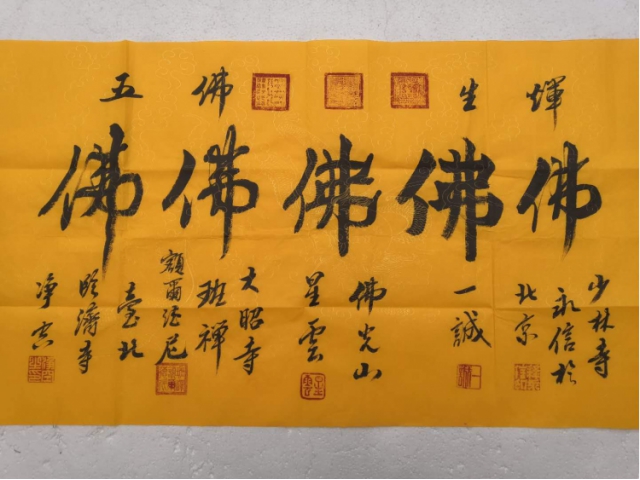 五佛生輝
佛佛佛佛佛
少林寺
永信於
北京
一誠
佛光山
星雲
大昭寺
班禪
額爾德尼
臺北
臨濟寺
淨空